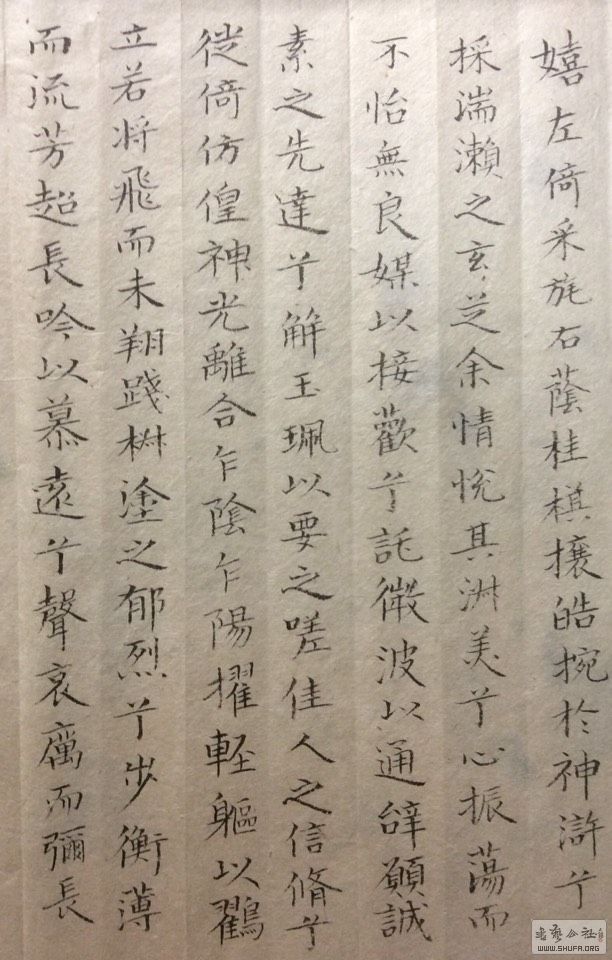 嬉左倚采旄右蔭桂棋攘皓捥於神滸兮
採湍瀨之玄芝余情悅其淋美兮心振蕩而
不怡無良媒以接歡兮託微波以通辝願誠
素之先達兮解玉珮以要之嗟佳人之信脩兮
從倚仿偟神光離合乍陰乍陽擢軽軀以鸖
立若将飛而未翔踐椒塗之郁烈兮步衡薄
而流芳超長吟以慕遠兮聲哀厲而彌長
書藝公社
WWW.SHUFA.ORG